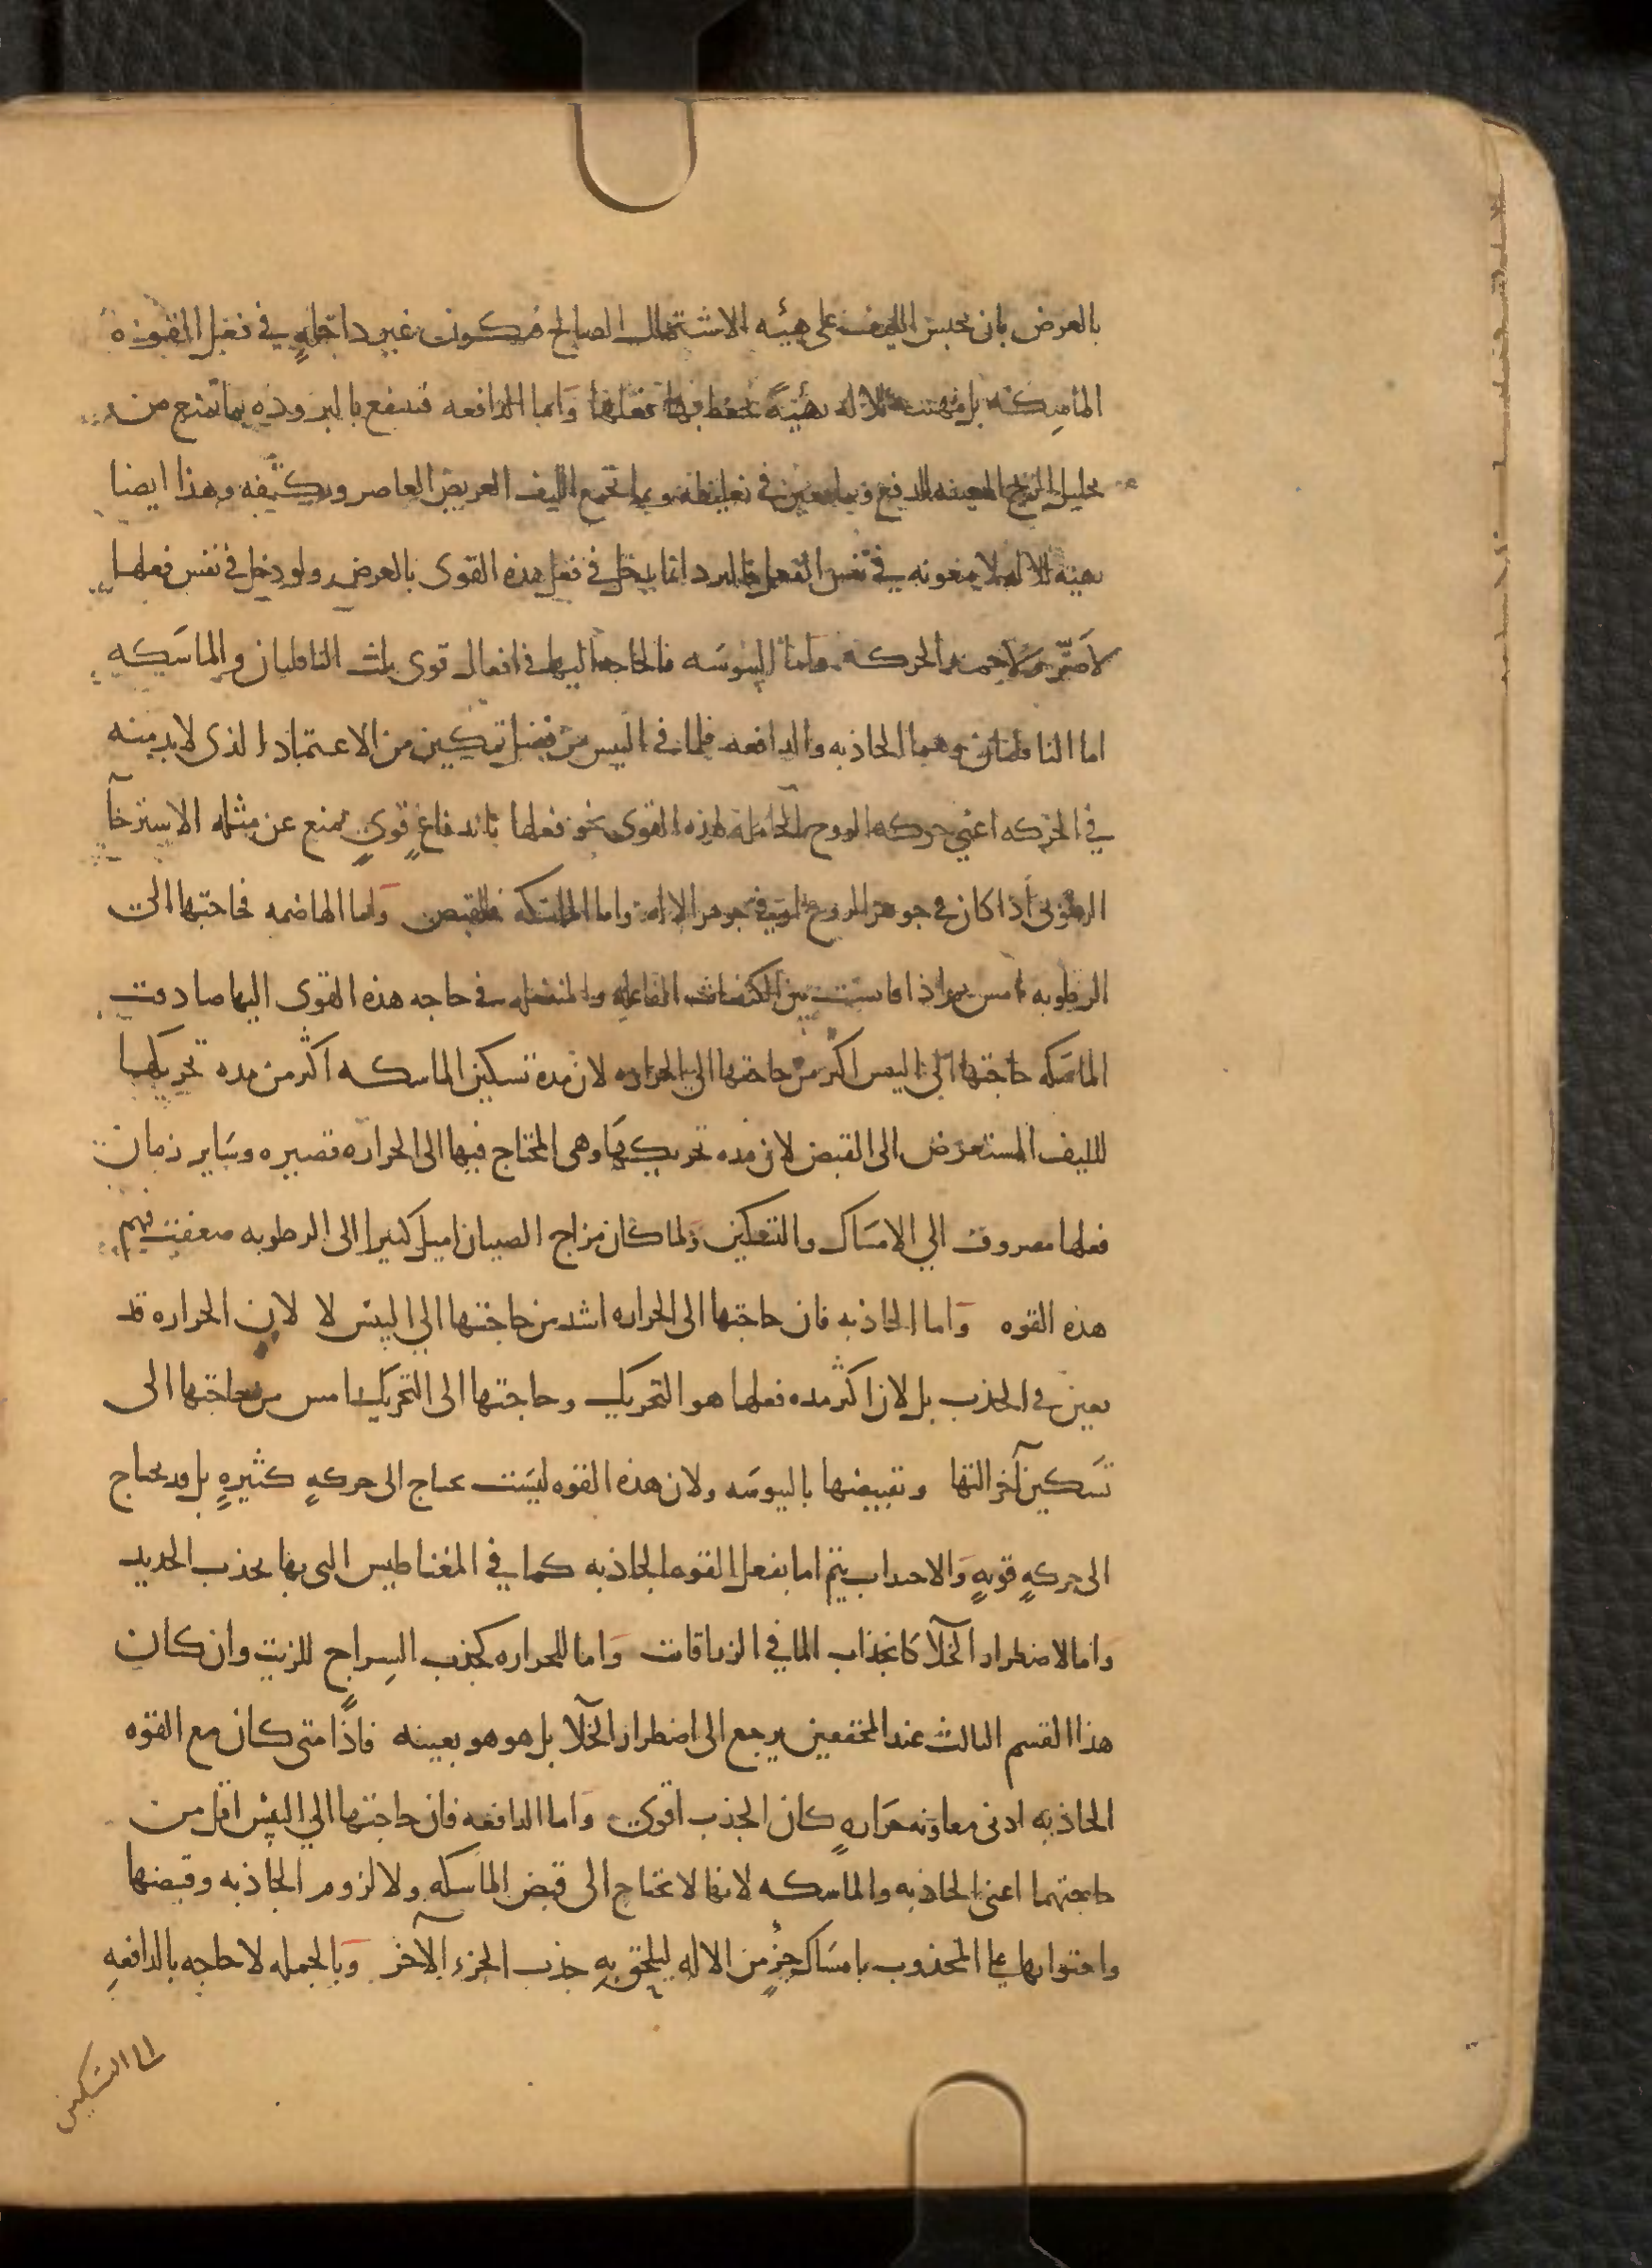 بالعرض بان يحبس الليف على هيئه الاشتمال الصالح فيكون غير داخلةٍ في فعل القوه
الماسِكه بل مهيئه للاله بهيئةً تحفظ بها فعلها وَاما الدافعه فتنفع بالبروده بما تمنع من
تحليل الريح المعينه للدفع وبما يعين في تغليظه وبما تجمع الليف العريض العاصر ويكثّفه وهذا ايضا
تهيئه للاله لا معونه في نفس الفعل فالبرد انما يدخل في فعل هذه القوى بالعرض ولو دخل في نفس فعلها
لاضَرّ ولاخمد الحركه وَاما اليبوسَه فالحاجه اليها في افعال قوى ثلث الناقلتان والماسَكه
اما الناقلتان وهما الجاذبه والدافعه فلما في اليبس من فضل تمكين من الاعتماد الذى لا بد منه
في الحركه اعني حركه الروح الحامله لهذه القوى نحو فعلها باندفاعٍ قويٍ تمنع عن مثله الاسترخآ
الرطوبى اذا كان في جوهر الروح او في جوهر الاله واما الماسكه فللقبض وَاما الهاضمه فحاجتها الى
الرطوبه امس ثم اذا قايست بين الكيفيات الفاعله والمنفعله في حاجه هذه القوى اليها صادفت
الماسَكه حاجتها الى اليبس اكثر من حاجتها الى الحراره لان مدة تسكين الماسكه اكثر من مده تحريكها
لليف المستعرض الى القبض لان مده تحريكها وهى المحتاج فيها الى الحراره قصيره وسَاير زمان
فعلها مصروف الي الامسَاك والتسكين وَلما كان مزاج الصبيان اميل كثيرا الى الرطوبه ضعفت فيهم
هذه القوه وَاما الجاذبه فان حاجتها الى الحراره اشد من حاجتها الي اليبس لا لان الحراره قد
تعين في الجذب بل لان اكثر مده فعلها هو التحريك وحاجتها الى التحريك امس من حاجتها الى
تسَكين آخر التها وتقبيضها باليبوسَه ولان هذه القوه ليسَت تحتاج الى حركهٍ كثيرهٍ بل قد تحتاج
الى حركهٍ قويهٍ وَالاجتذاب يتم اما بفعل القوه الجاذبه كما في المغناطيس التى بها يجذب الحديد
وَاما لاضطرار الخلآ كانجذاب الما في الزراقات وَاما للحراره كجذب السِراج للزيت وان كان
هذا القسم الثالث عند المحققين يرجع الى اضطرار الخلآ بل هو هو بعينه فاذًا متى كان مع القوه
الجاذبه ادنى معاونه حرَارهٍ كان الجذب اقوى وَاما الدافعه فان حاجتها الي اليبس اقل من
حاجتهما اعنى الجاذبه والماسكه لانها لا تحتاج الى قبض الماسكه ولا لزوم الجاذبه وقبضها
واحتوايها على المجذوب بامسَاك جزءٍ من الاله ليلحق بهِ جذب الجزء الآخر وَبالجمله لا حاجه بالدافعهِ
الى التسكين